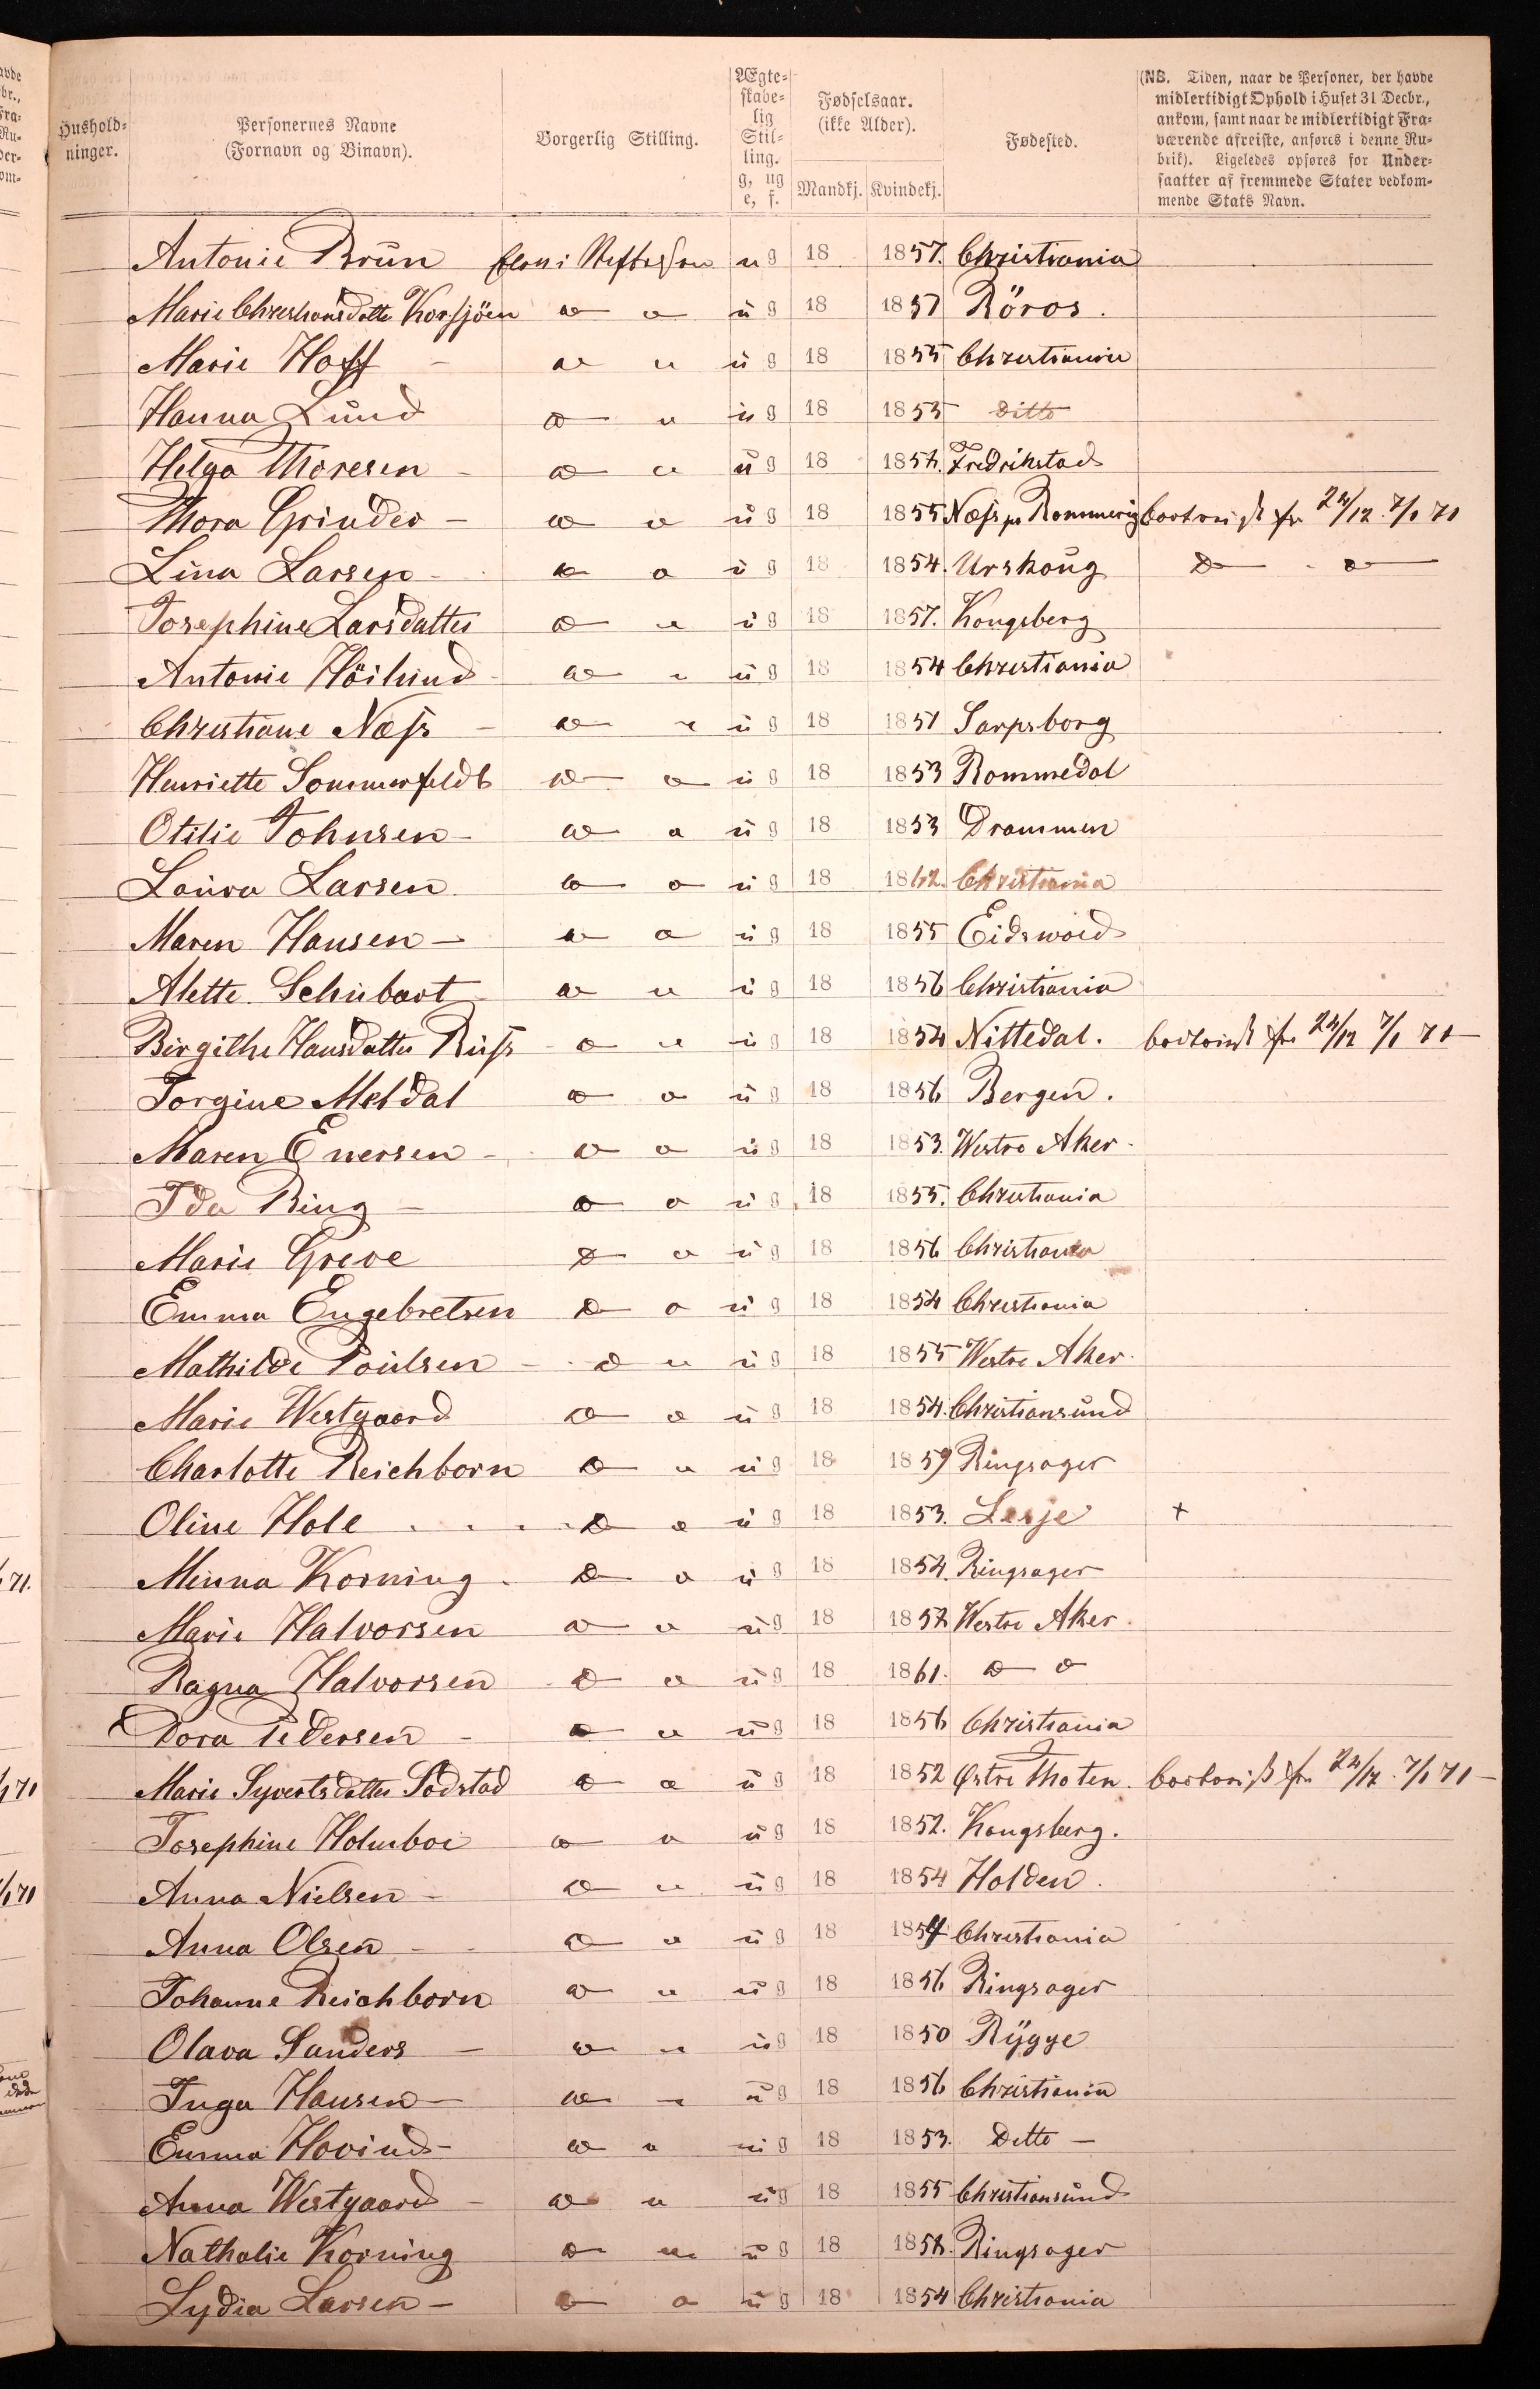 Hushold-
ninger.
Personernes Navne
(Fornavn og Binavn).
Borgerlig Stilling.
Ægte-
skabe-
lig
Stil-
ling.
g, ug
e, f.
Fødselsaar.
(ikke Alder).
Mandkj. Kvindekj.
Fødested.
(NB. Tiden, naar de Personer, der havde
midlertidigt Ophold i Huset 31 Decbr.,
ankom, samt naar de midlertidigt Fra-
værende afreiste, anføres i denne Ru-
brik). Ligeledes opføres for Under-
saatter af fremmede Stater vedkom-
mende Stats Navn.
Antonie Brun Elev i ug 18 1857. Christiania
Marie Christiansdatte Korsjöen do do ug 18 1857 Röros.
Marie Hoff - do do ug 18 1855 Christiania
Hanna Lund do do ug 18 1853 Ditto
Helga Thoresen - do do ug 18 1852. Fredrikstad
Thora Grinder - do do ug 18 1855 Næss pr Rommerig bortreist fra 24/12. 7/1 71
Lina Larsen - do do ug 18 1854. Urskoug do - do
Josephine Larsdatter do do ug 18 1857. Kongsberg
Antonie Höilund do do ug 18 1854 Christiania
Christiane Næss - do do ug 18 1851 Sarpsborg
Henriette Sommerfeldt do do ug 18 1853 Rommedal
Otilie Johnsen - do do ug 18 1853 Drammen
Laura Larsen do do ug 18 1862. Christiania
Maren Hansen - do do ug 18 1855 Eidswold
Alette Schubart do do ug 18 1856 Christiania
Birgithe Hansdatter do do ug 18 1854 Nittedal. bortreist fra 24/12 7/1 71 -
Jorgine Meldal do do ug 18 1856 Bergen.
Maren Enersen - do do ug 18 1853. Westre Aker.
Ida Ring - do do ug 18 1855. Christiania
Marie Greve do do ug 18 1856 Christiania
Emma Engebretsen do do ug 18 1854 Christiania
Mathilde Poulsen - do do ug 18 1855 Westre Aker.
Marie Westgaard do do ug 18 1854. Christiansund
Charlotte Reichborn do do ug 18 1859 Ringsager
Oline Hole . . . do do ug 18 1853. Lesje +
Minna Korning - do do ug 18 1854. Ringsager
Marie Halvorsen do do ug 18 1852 Westre Aker.
Ragna Halvorsen do do ug 18 1861. do do
Dora Pedersen - do do ug 18 1856 Christiania
Marie Syvertsdatter Sodstad do do ug 18 1852 Østre Thoten. bortreist fra 24/12. 7/1 71 -
Josephine Holmboe do do ug 18 1852. Kongsberg.
Anna Nielsen - do do ug 18 1854 Holden.
Anna Olsen - do do ug 18 1854 Christiania
Johanne Reichborn do do ug 18 1856 Ringsager
Olava Sanders - do do ug 18 1850 Rygge
Inga Hansen - do do ug 18 1856 Christiania
Emma Hovind - do do ug 18 1853. Ditto -
Anna Westgaard - do do ug 18 1855 Christiansund
Nathalie Korning do do ug 18 1858. Ringsager
Lydia Larsen - do do ug 18 1854 Christiania